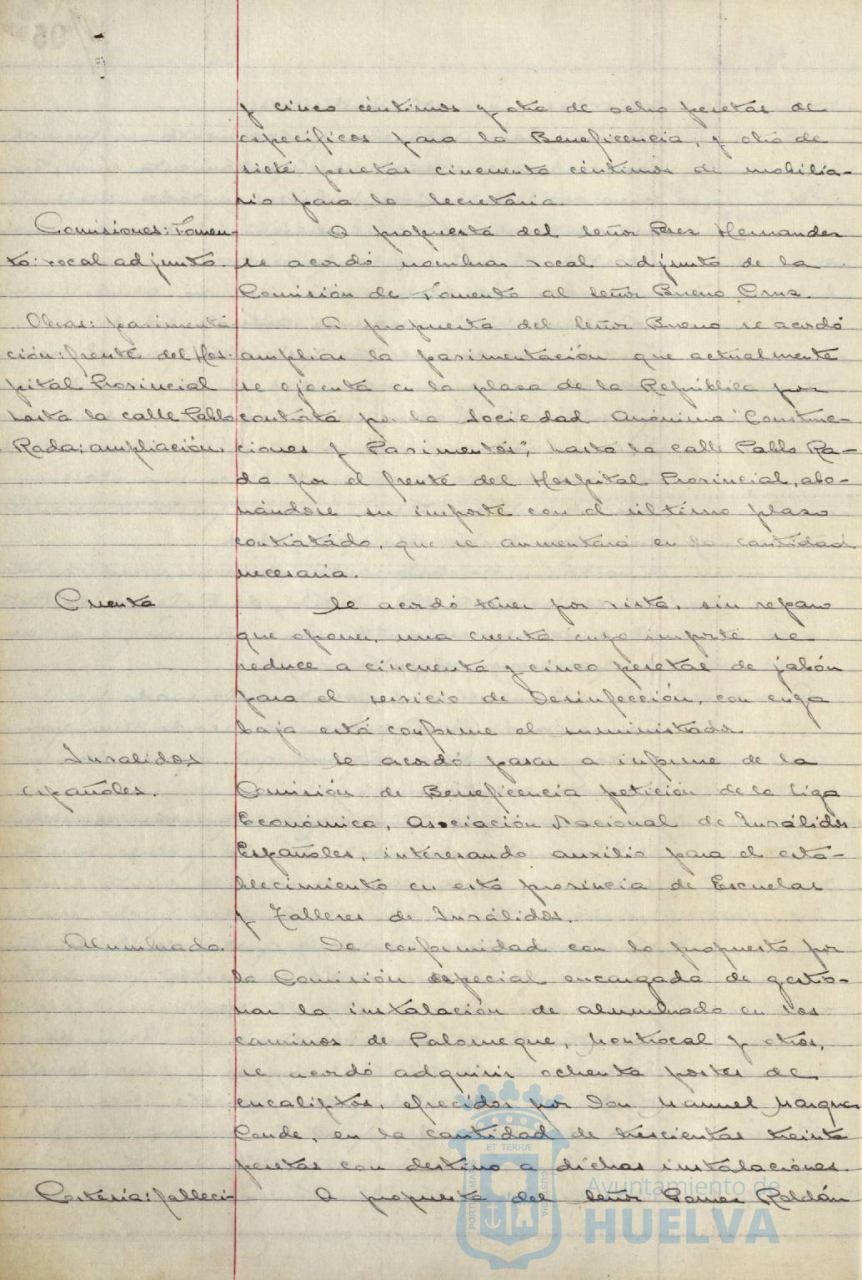 y cinco céntimos y otra de ocho pesetas de
específicos para la Beneficencia, y otro de
siete pesetas cincuenta céntimos de mobilia-
rio para la Secretaria.
Comisiones: Fomen-
to: vocal adjunto.
A propuesta del Señor Perez Hernandez
se acordó nombrar vocal adjunto de la
Comisión de Fomento al Señor Bueno Cruz.
Obras: pavimenta
ción: frente del Hos-
pital Provincial
hasta la calle Pablo
Rada: ampliación.
A propuesta del Señor Bueno se acordó
ampliar la pavimentación que actualmente
se ejecuta en la plaza de la República por
contrata por la Sociedad Anónima "Construc-
ciones y Pavimentos", hasta la calle Pablo Ra-
da por el frente del Hospital Provincial, abo-
nándose su importe con el último plazo
contratado, que se aumentará en la cantidad
necesaria.
Cuenta
Se acordó tener por vista, sin reparo
que oponer, una cuenta cuyo importe se
reduce a cincuenta y cinco pesetas de jabón
para el servicio de Desinfección, con cuya
baja está conforme el suministrador.
Inválidos
españoles.
Se acordó pasar a informe de la
Comisión de Beneficencia petición de la Liga
Económica, Asociación Nacional de Inválidos
Españoles, interesando auxilio para el esta-
blecimiento en esta provincia de Escuelas
y Talleres de Inválidos.
Alumbrado.
De conformidad con lo propuesto por
la Comisión especial encargada de gestio-
nar la instalación de alumbrado en los
caminos de Palomeque, Montrocal y otros,
se acordó adquirir ochenta postes de
eucaliptos, ofrecidos por Don Manuel Marquez
Conde, en la cantidad de trescientas treinta
pesetas con destino a dichas instalaciones.
Cartería: falleci-
A propuesta del Señor Gomez Roldán
PORTUS MARIS
ET TERRÆ
CUSTODIA
Ayuntamiento de
HUELVA